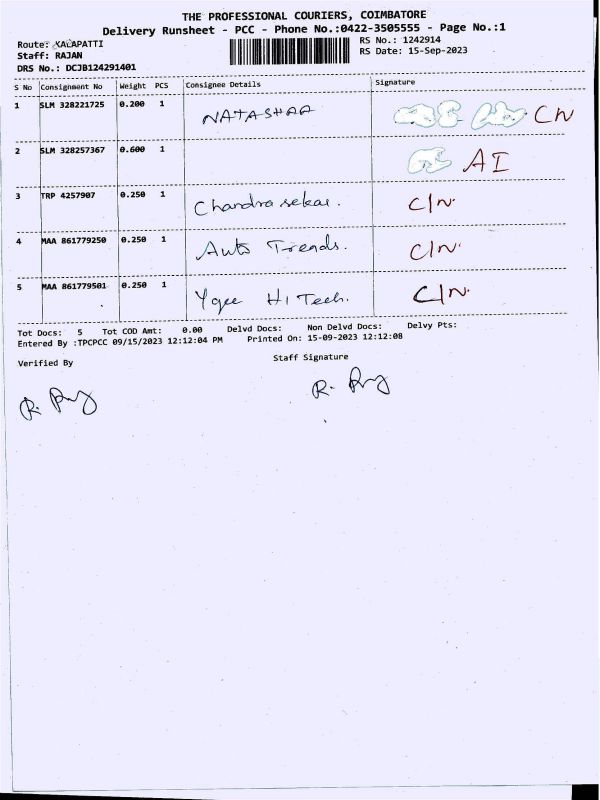 THE PROFESSIONAL COURIERS, COIMBATORE
Delivery Runsheet - PCC - Phone No.:0422-3505555 - Page No.:1
Route: KALAPATTI RS No.: 1242914
Staff: RAJAN RS Date: 15-Sep-2023
DRS No.: DCJB124291401
S No Consignment No Weight PCS Consignee Details Signature
1 SLM 328221725 0.200 1 NATASHAA CN
2 SLM 328257367 0.600 1 AI
3 TRP 4257907 0.250 1 Chandra sekar. C/N.
4 MAA 861779250 0.250 1 Auto Trends. C/N.
5 MAA 861779501 0.250 1 Hi Tech. C/N.
Tot Docs: 5 Tot COD Amt: 0.00 Delvd Docs: Non Delvd Docs: Delvy Pts:
Entered By :TPCPCC 09/15/2023 12:12:04 PM Printed On: 15-09-2023 12:12:08
Verified By Staff Signature
R. R.